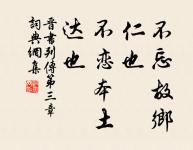 不忘故鄉
仁也
不恋本土
达也
晉書列傳第三章
詞典網集